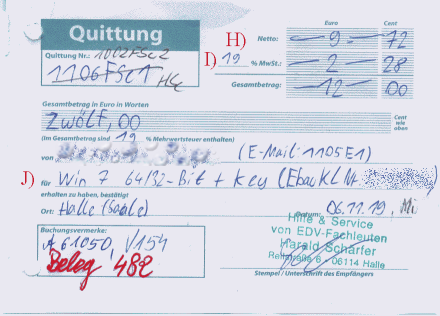 Quittung
Euro Cent
H) Netto: 9 72
Quittung Nr.: 1002FSc2
1106FSC1
I) 19 % MwSt.: 2 28
Gesamtbetrag: 12 00
Gesamtbetrag in Euro in Worten
Zwölf, 00
Cent wie oben
(Im Gesamtbetrag sind 19 % Mehrwertsteuer enthalten)
von (E-Mail: 1105E1)
J) für Win 7 64/32-Bit + Key (Ebay KL Nr.
erhalten zu haben, bestätigt
Ort: Halle (Saale) Datum: 06.11.19, Mi
Hilfe & Service
von EDV-Fachleuten
Harald Schärfer
6 - 06114 Halle
Buchungsvermerke:
A 61050, 1/154
Beleg 482
Stempel / Unterschrift des Empfängers